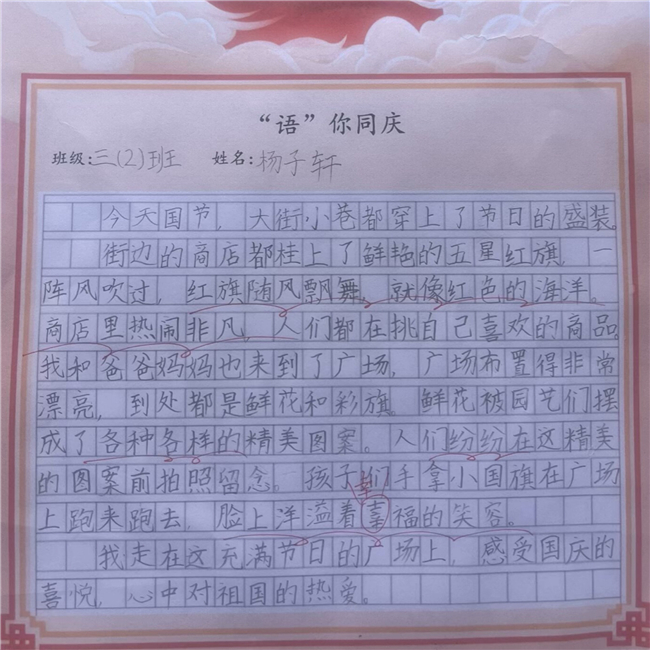 “语”你同庆
班级:三(2)班 姓名:杨子轩
今天国节，大街小巷都穿上了节日的盛装。
街边的商店都桂上了鲜艳的五星红旗。一
阵风吹过，红旗随风飘舞。就像红色的海洋。
商店里热闹非凡，人们都在挑自己喜欢的商品。
我和爸爸妈妈也来到了广场，广场布置得非常
漂亮，到处都是鲜花和彩旗。鲜花被园艺们摆
成了各种各样的精美图案。人们纷纷在这精美
的图案前拍照留念。孩子们手拿小国旗在广场
上跑来跑去，脸上洋溢着幸福的笑容。
我走在这充满节日的广场上，感受国庆的
喜悦，心中对祖国的热爱。